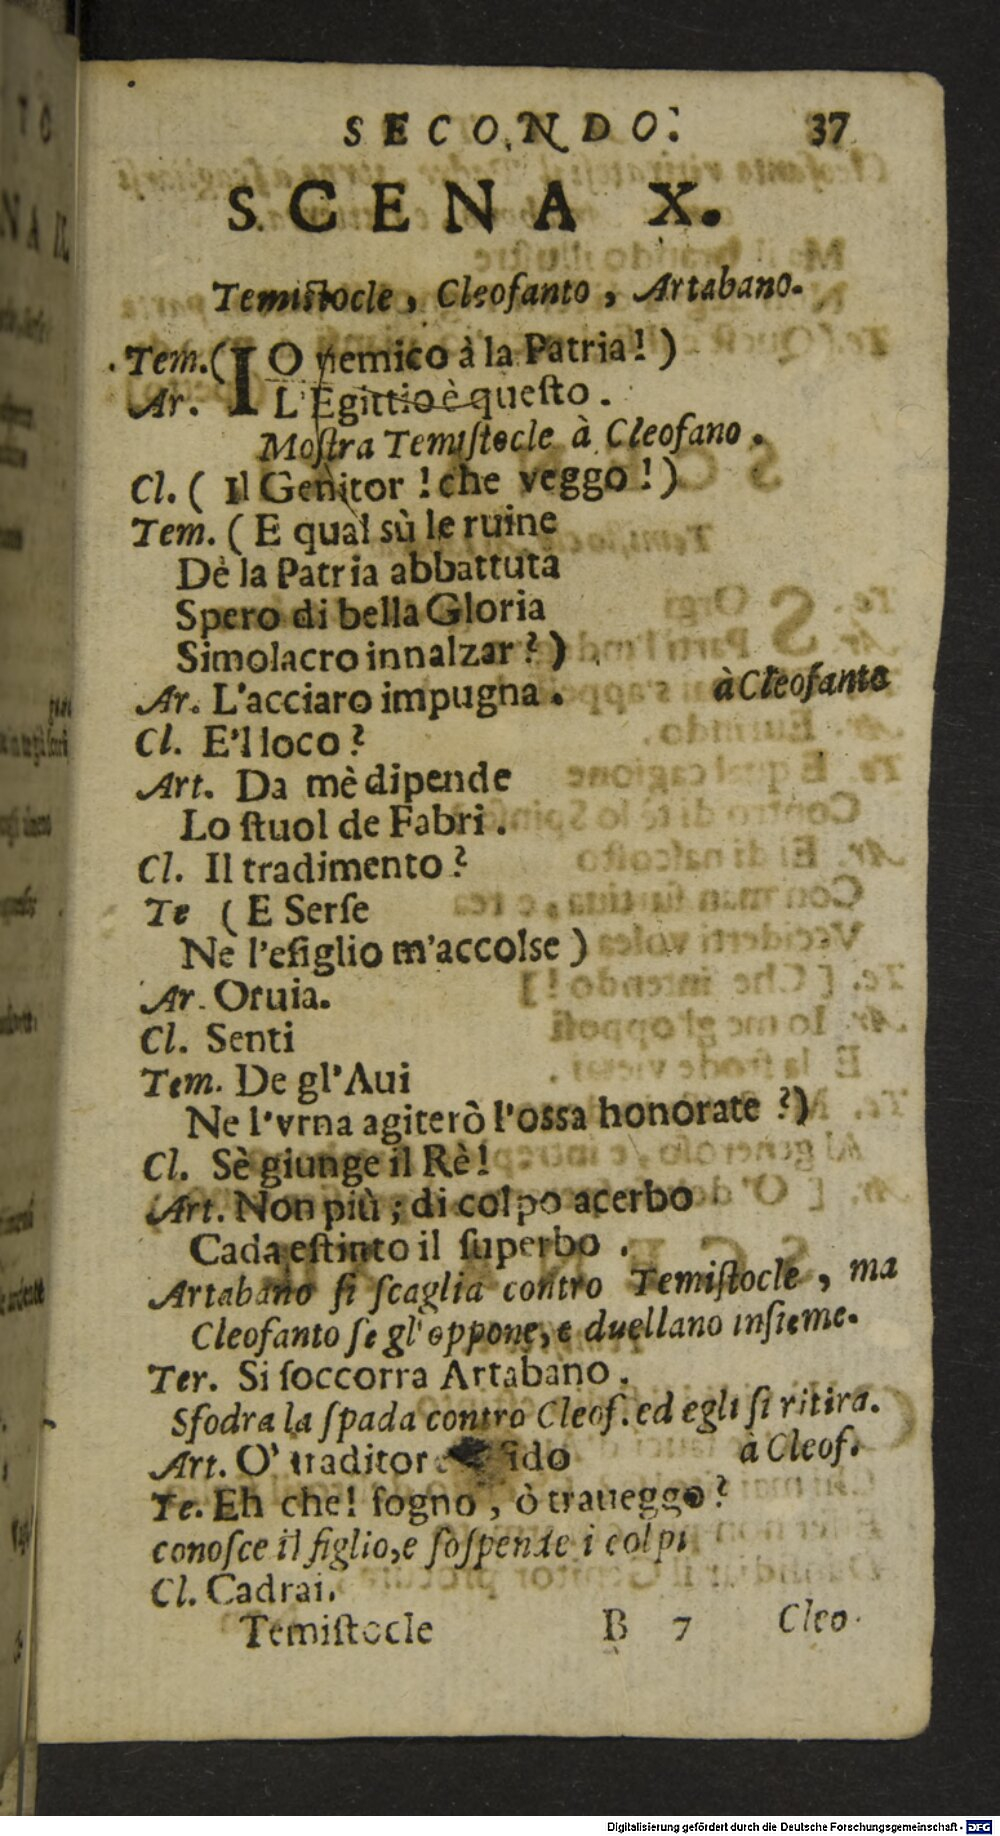 SECONDO. 37
SCENA X.
Temiſtocle, Cleofanto, Artabano.
Tem. (IO nemico à la Patria!)
Ar. L'Egittio è queſto.
Moſtra Temiſtocle à Cleofano.
Cl. (Il Genitor! che veggo!)
Tem. (E qual sù le ruine
Dè la Patria abbattuta
Spero di bella Gloria
Simolacro innalzar?)
Ar. L'acciaro impugna. à Cleofanto
Cl. E'l loco?
Art. Da mè dipende
Lo ſtuol de Fabri.
Cl. Il tradimento?
Te (E Serſe
Ne l'eſiglio m'accolse)
Ar. Oruia.
Cl. Senti
Tem. De gl'Aui
Ne l'vrna agiterò l'ossa honorate?)
Cl. Sè giunge il Rè!
Art. Non più; di colpo acerbo
Cada eſtinto il ſuperbo.
Artabano ſi ſcaglia contro Temiſtocle, ma
Cleofanto ſe gl'oppone, e duellano inſieme.
Ter. Si ſoccorra Artabano.
Sfodra la ſpada contro Cleof. ed egli ſi ritira.
Art. O' traditor fido à Cleof.
Te. Eh che! ſogno, ò traueggo?
conoſce il figlio, e ſoſpende i colpi
Cl. Cadrai.
Temiſtocle B 7 Cleo.
Digitalisierung gefördert durch die Deutsche Forschungsgemeinschaft - DFG